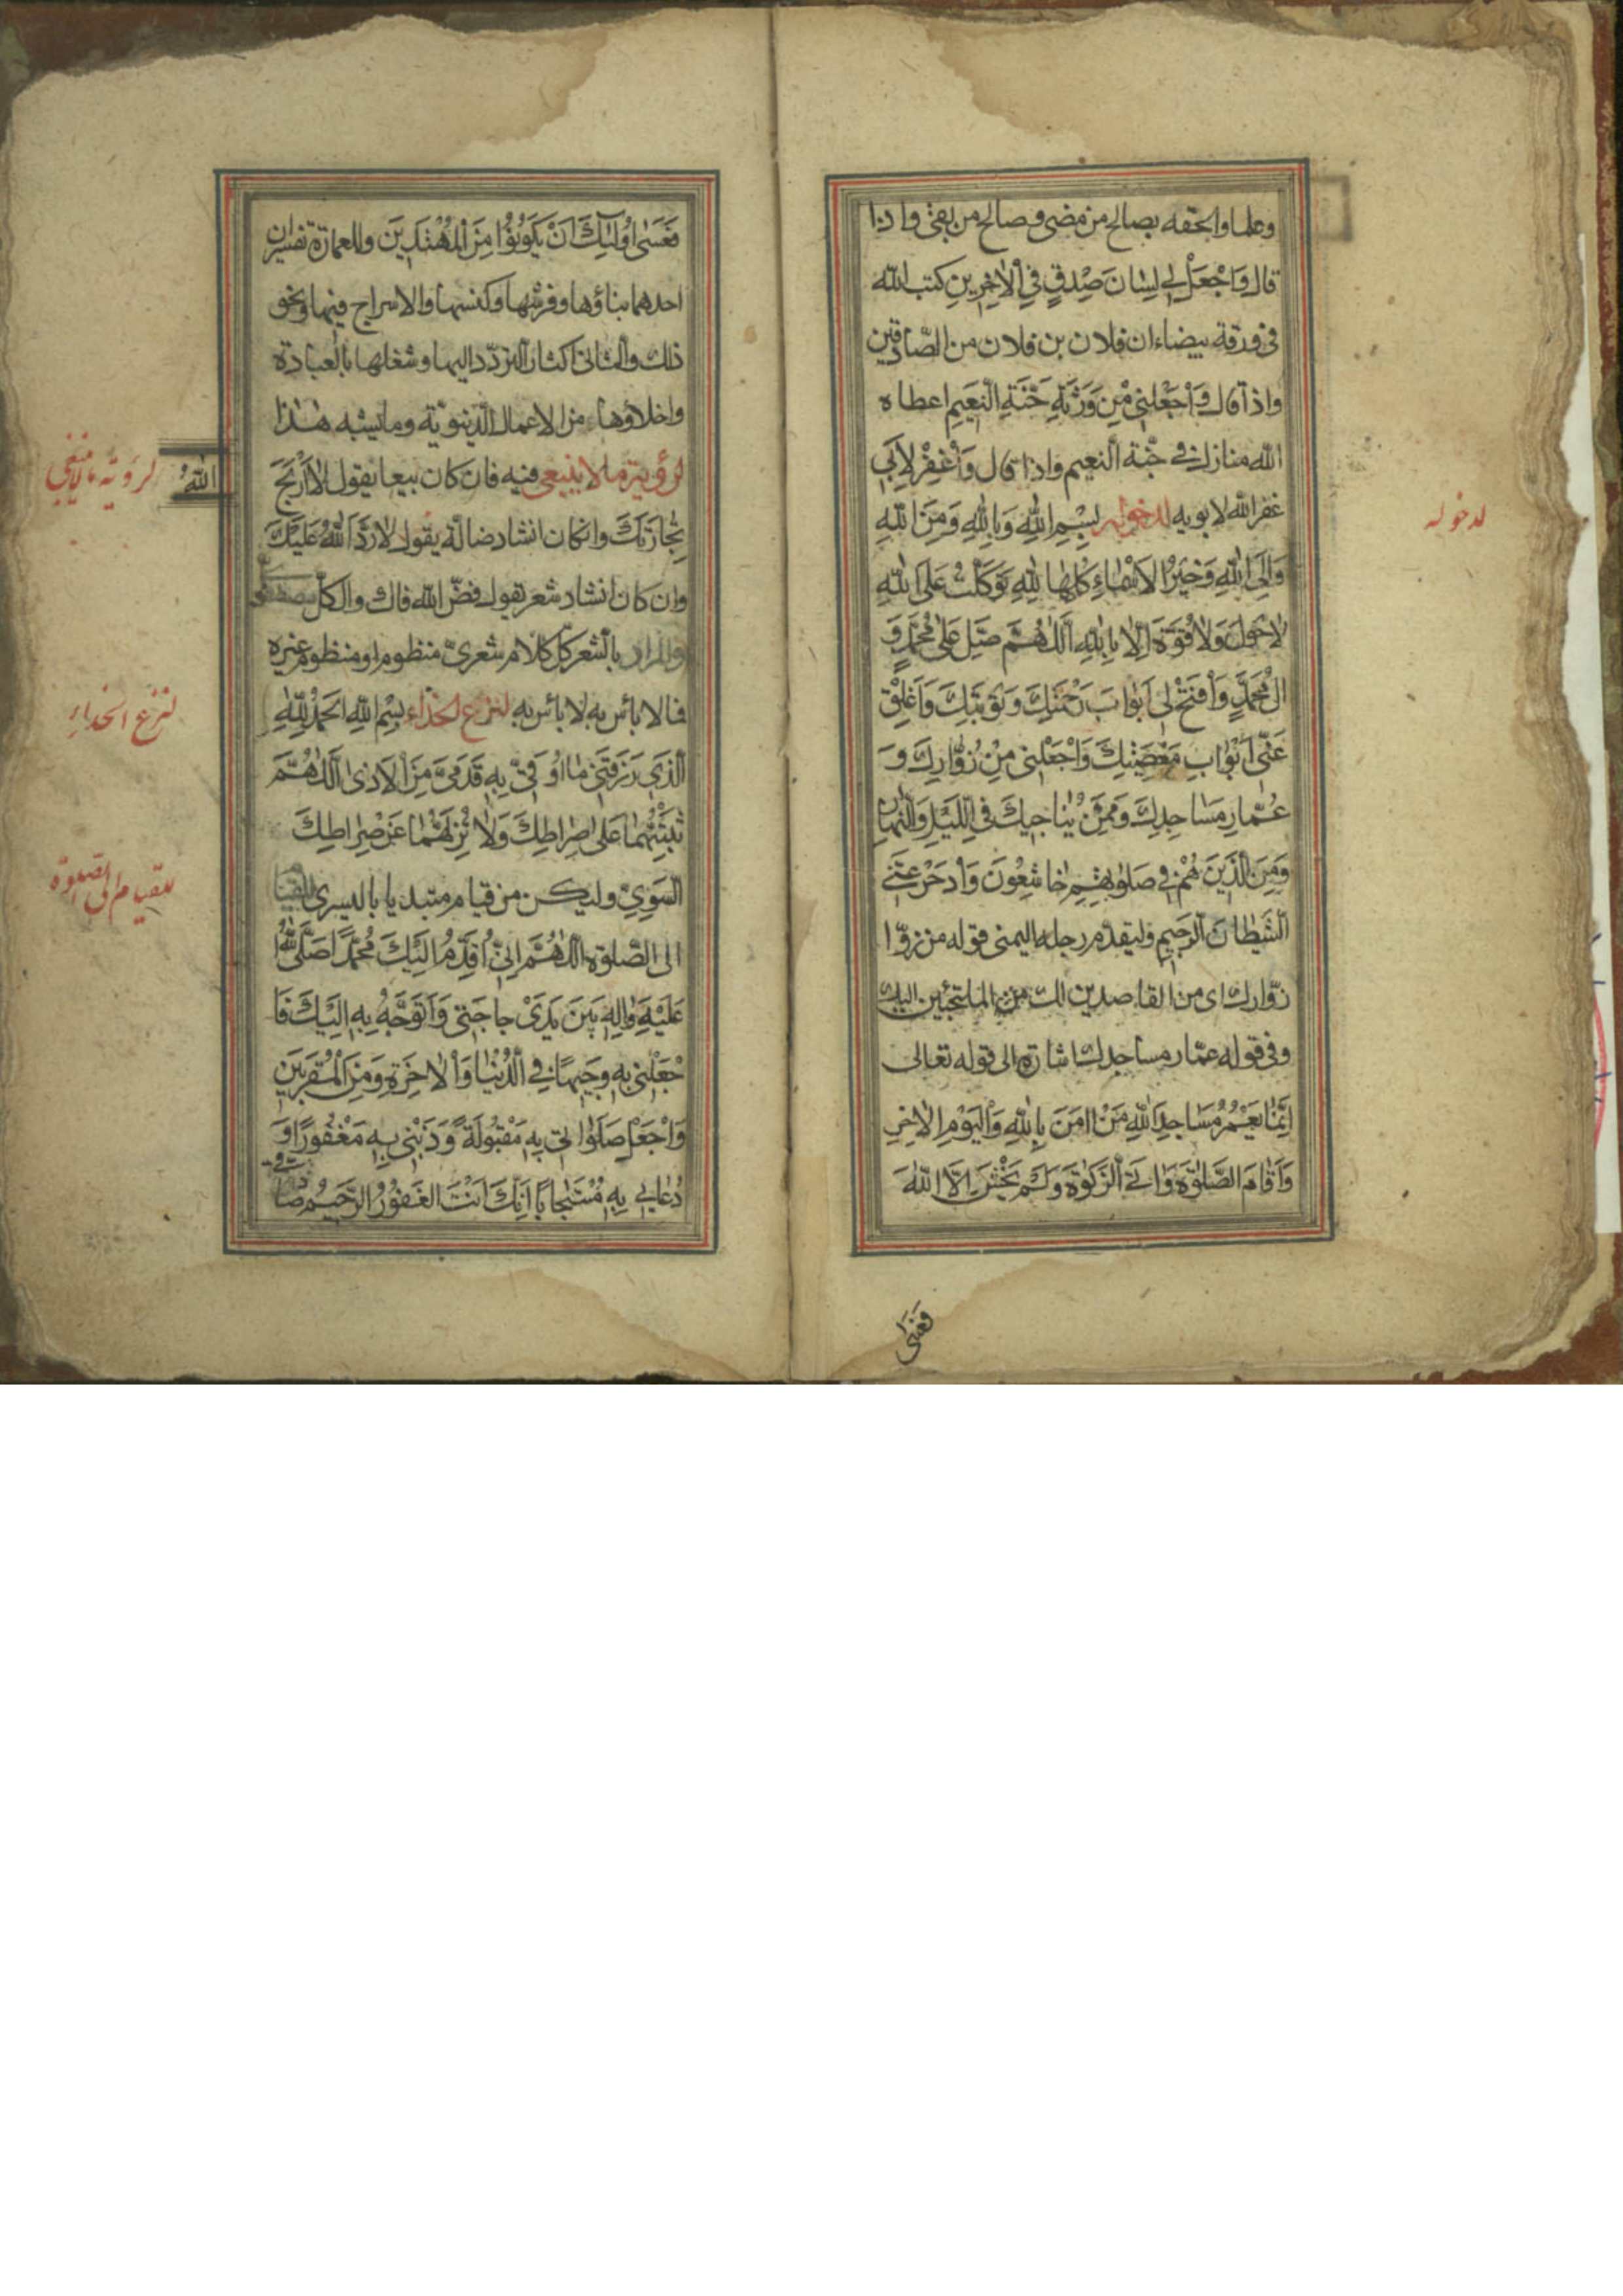 وعلما والحقه بصالح من مضى وصالح من بقى واذا
قال وَاجْعَلْ لِي لِسٰانَ صِدْقٍ فِي الْاٰخِرِينَ كتب الله
فى ورقة بيضاء ان فلان بن فلان من الصّادقين
واذا قال وَاجْعَلْنِي مِنْ وَرَثَةِ جَنَّةِ النَّعِيمِ اعطاه
الله منازل فى جنّة النعيم واذا قال وَاغْفِرْ لِاَبِي
غفر الله لابويه لدخوله بِسْمِ اللّٰهِ وَبِاللّٰهِ وَمِنَ اللّٰهِ
وَاِلَى اللّٰهِ وَخَيْرُ الْاَسْمٰاءِ كُلِّهٰا لِلّٰهِ تَوَكَّلْتُ عَلَى اللّٰهِ
لٰا حَوْلَ وَلٰا قُوَّةَ اِلّٰا بِاللّٰهِ اَللّٰهُمَّ صَلِّ عَلىٰ مُحَمَّدٍ وَ
اٰلِ مُحَمَّدٍ وَافْتَحْ لِى اَبْوٰابَ رَحْمَتِكَ وَتَوْبَتِكَ وَاَغْلِقْ
عَنّى اَبْوٰابَ مَعْصِيَتِكَ وَاجْعَلْنى مِنْ زُوّٰارِكَ وَ
عُمّٰارِ مَسٰاجِدِكَ وَمِمَّنْ يُنٰاجِيكَ فِى اللَّيْلِ وَالنَّهٰارِ
وَمِنَ الَّذِينَ هُمْ فِى صَلٰوتِهِمْ خٰاشِعُونَ وَادْحَرْ عَنّى
الشَّيْطٰانَ الرَّجِيمَ وليقدّم رجله اليمنى قوله من زوّا
زوّارك اى من القاصدين لك من الملتجئين اليك
وفى قوله عمّار مساجدك اشارة الى قوله تعالى
اِنَّمٰا يَعْمُرُ مَسٰاجِدَ اللّٰهِ مَنْ اٰمَنَ بِاللّٰهِ وَالْيَوْمِ الْاٰخِرِ
وَاَقٰامَ الصَّلٰوةَ وَاٰتَى الزَّكٰوةَ وَلَمْ يَخْشَ اِلَّا اللّٰهَ
لدخوله
فَعَسٰى
فَعَسٰى اُولٰئِكَ اَنْ يَكُونُوا مِنَ الْمُهْتَدِينَ وللعمارة تفسيران
احدهما بناؤها وفرشها وكنسها والاسراج فيها ونحو
ذلك والثانى اكثار التردّد اليها وشغلها بالعبادة
واخلاؤها من الاعمال الدّنيويّة وما يشبه هٰذا
لرؤية ما لا ينبغى فيه فان كان بيعا يقول لا اَرْبَحَ
اللّٰهُ
تِجٰارَتَكَ وان كان انشاد ضالّة يقول لٰا رَدَّ اللّٰهُ عَلَيْكَ
وان كان انشاد شعر يقول فضّ الله فاك والكلّ
والمراد بالشعر كلّ كلام شعرىّ منظوم او منظوم غيره
فما لا بأس به لا بأس به لنزع الحذاء بِسْمِ اللّٰهِ الْحَمْدُ لِلّٰهِ
الَّذِى رَزَقَنِى مٰا اُوقِىَ بِهِ قَدَمَىَّ مِنَ الْاَذىٰ اَللّٰهُمَّ
ثَبِّتْهُمٰا عَلىٰ صِرٰاطِكَ وَلٰا تُزِلَّهُمٰا عَنْ صِرٰاطِكَ
السَّوِىِّ وليكن من قيام مبتديا باليسرى للقيام
الى الصّلوة اَللّٰهُمَّ اِنّى اُقَدِّمُ اِلَيْكَ مُحَمَّدًا صَلَّى اللّٰهُ
عَلَيْهِ وَاٰلِهِ بَيْنَ يَدَىْ حٰاجَتى وَاَتَوَجَّهُ بِهِ اِلَيْكَ فَا
جْعَلْنى بِهِ وَجِيهًا فِى الدُّنْيٰا وَالْاٰخِرَةِ وَمِنَ الْمُقَرَّبِينَ
وَاجْعَلْ صَلٰوتى بِهِ مَقْبُولَةً وَذَنْبى بِهِ مَغْفُورًا وَ
دُعٰائى بِهِ مُسْتَجٰابًا اِنَّكَ اَنْتَ الْغَفُورُ الرَّحِيمُ
لرؤية ما لا ينبغى
لنزع الحذاء
للقيام الى الصلوة